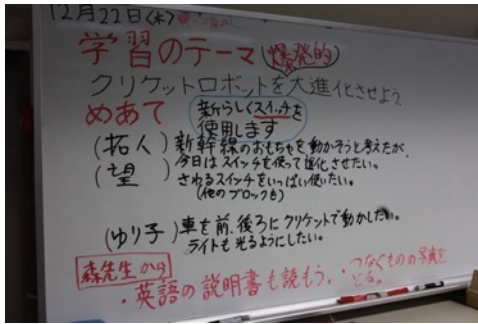 12月22日(木)
学習のテーマ(爆発的)
クリケットロボットを大進化させよう.
めあて
新らしくスイッチを
使用します
(拓人)新幹線のおもちゃを動かそうと考えたが、
(望)今日はスイッチを使って進化させたい。
さわるスイッチをいっぱい使いたい。
(他のブロックも)
(ゆり子)車を前、後ろにクリケットで動かしたい。
ライトも光るようにしたい。
森先生から
・英語の説明書も読もう。・つなぐものの写真を
とる。